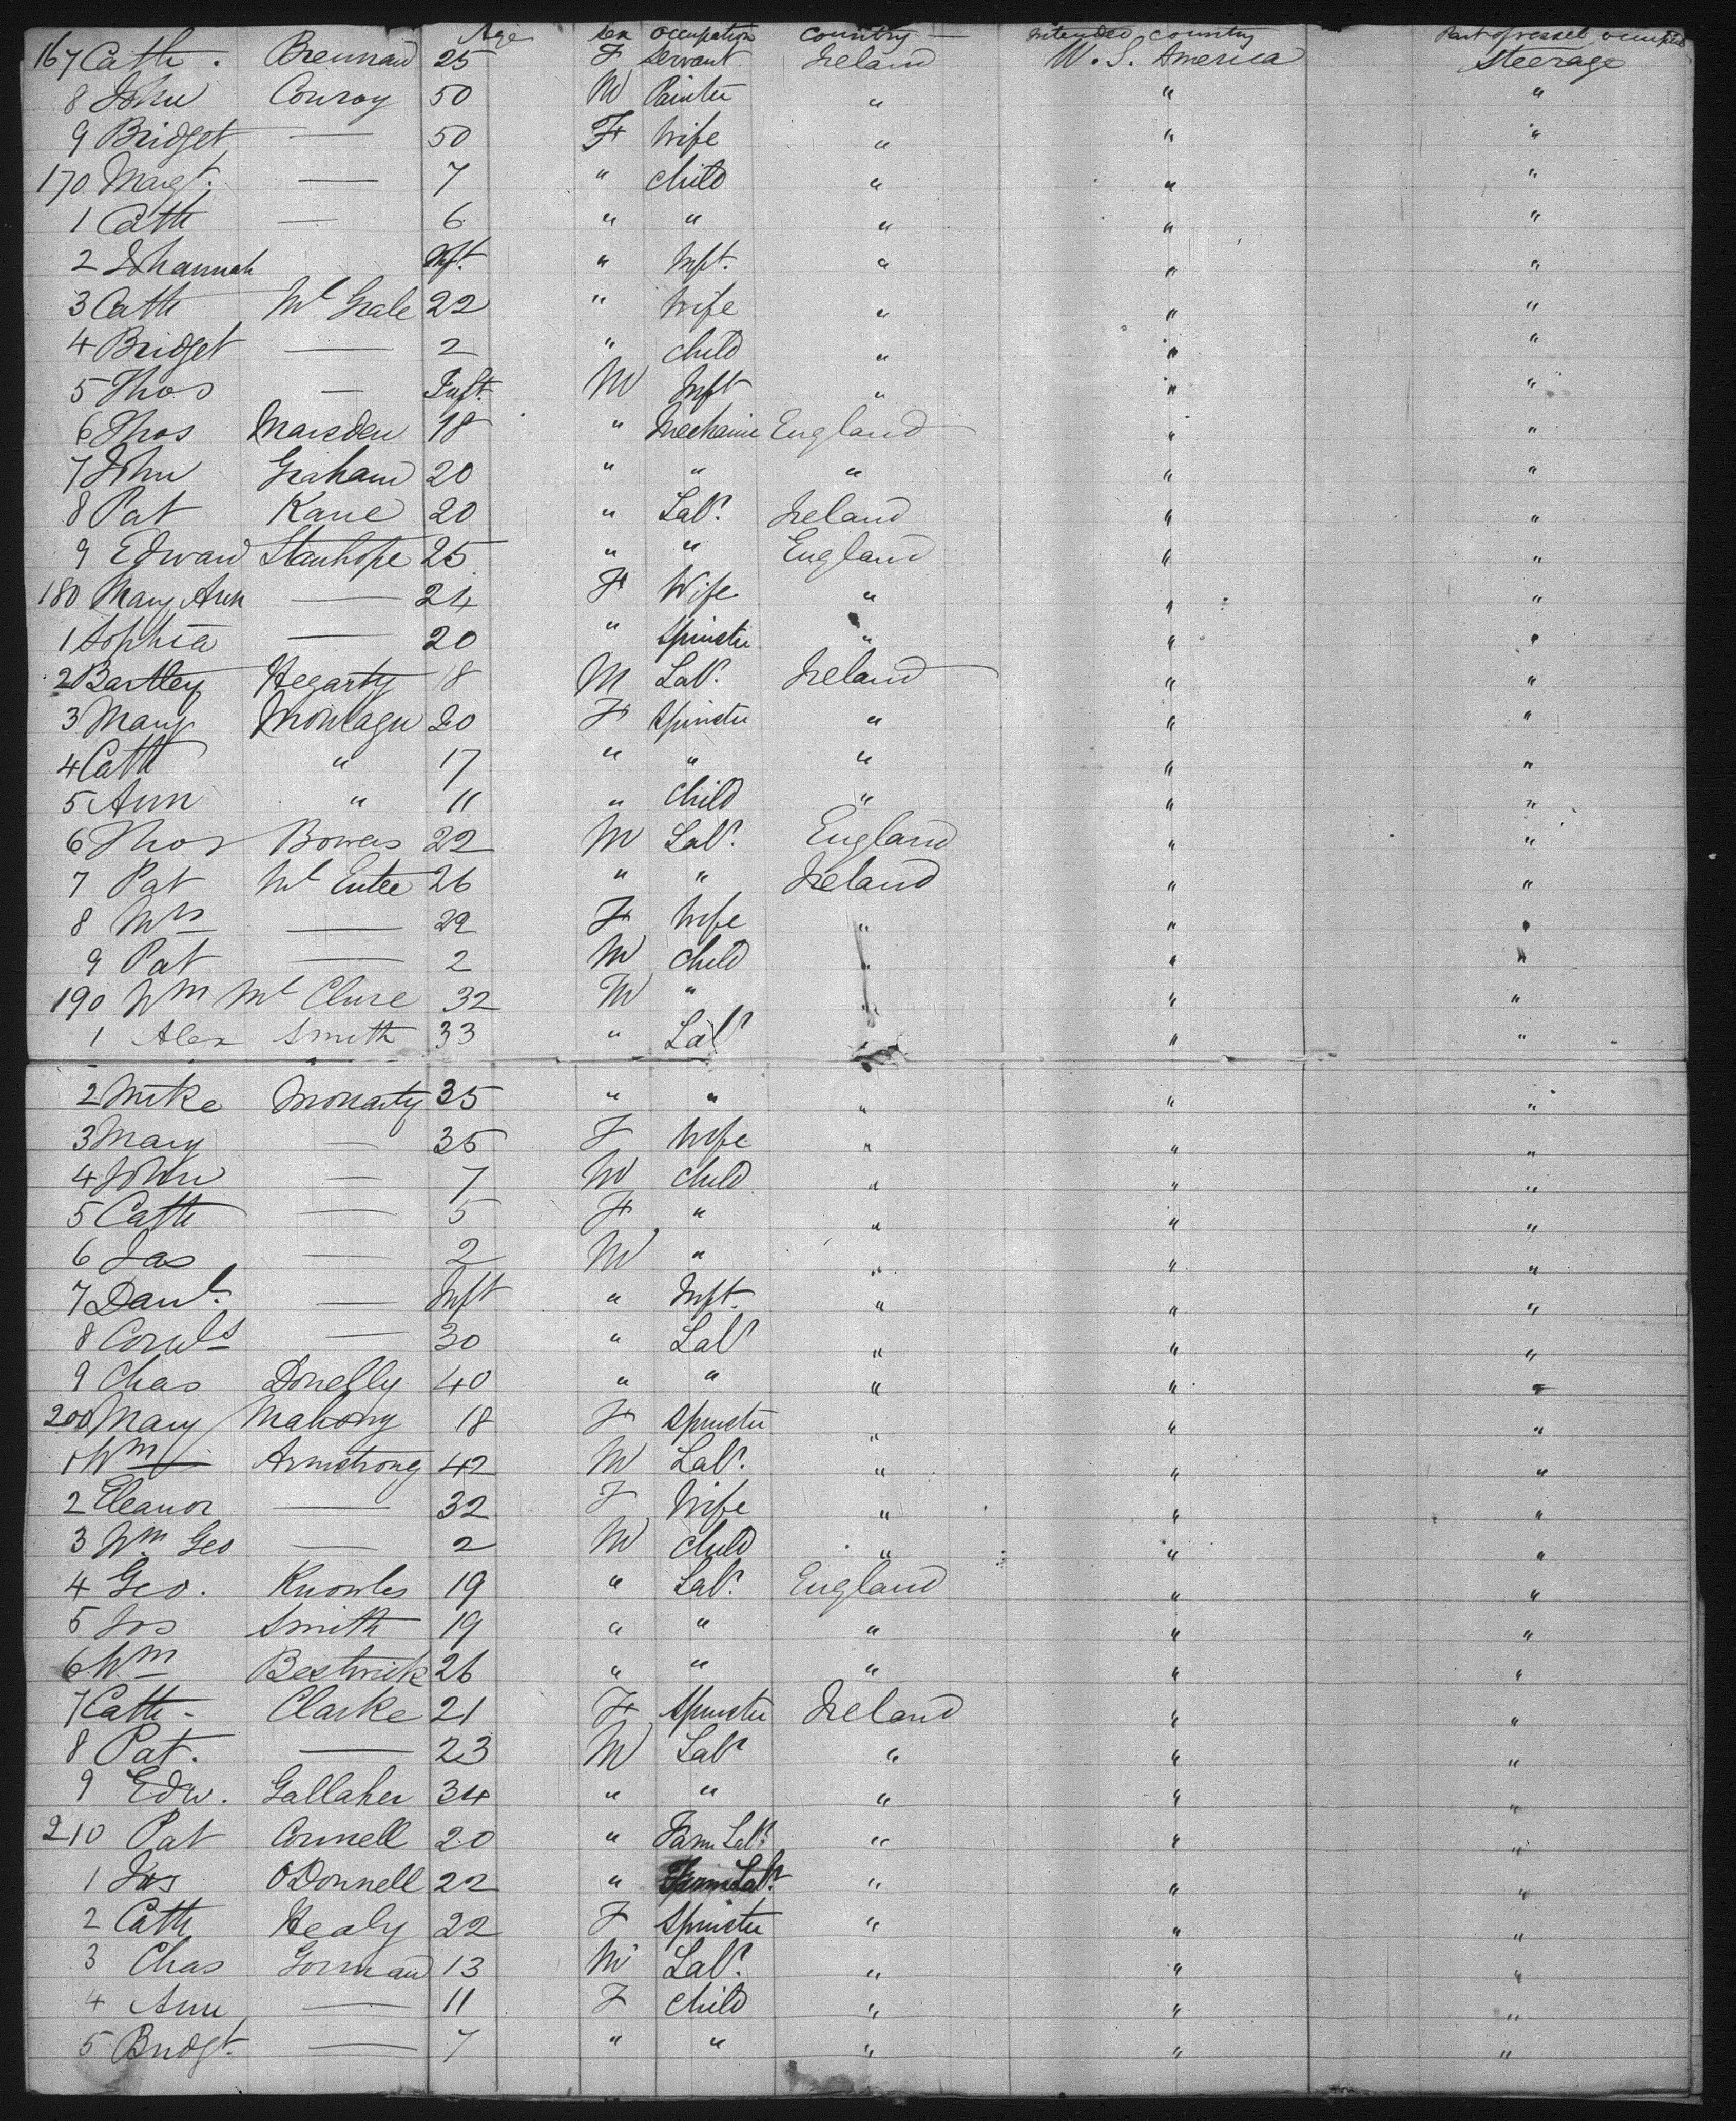 Age Sex Occupation Country Intended Country Part of vessel occupied
167 Cath. Brennan 25 F Servant Ireland U. S. America Steerage
8 John Conroy 50 M Painter " " "
9 Bridget — 50 F Wife " " "
170 Margt. — 7 " Child " " "
1 Cath — 6 " " " " "
2 Johannah Inft. " Inft. " " "
3 Cath Mc Hale 22 " Wife " " "
4 Bridget — 2 " Child " " "
5 Thos — Inft. M Inft " " "
6 Thos Marsden 18 " Mechanic England " "
7 John Graham 20 " " " " "
8 Pat Kane 20 " Labr. Ireland " "
9 Edward Stanhope 25 " " England " "
180 Mary Ann — 24 F Wife " " "
1 Sophia — 20 " Spinster " " "
2 Bartley Hegarty 18 M Labr. Ireland " "
3 Mary Montagu 20 F Spinster " " "
4 Cath " 17 " " " " "
5 Ann " 11 " Child " " "
6 Thos Bowers 22 M Labr. England " "
7 Pat Mc Entee 26 " " Ireland " "
8 Mrs — 22 F Wife " " "
9 Pat — 2 M Child " " "
190 Wm Mc Clure 32 M " " " "
1 Alex Smith 33 " Labr " " "
2 Mike Moriarty 35 " " " " "
3 Mary — 35 F Wife " " "
4 John — 7 M Child " " "
5 Cath — 5 F " " " "
6 Jas — 2 M " " " "
7 Danl. — Inft " Inft. " " "
8 Cornls — 30 " Labr " " "
9 Chas Donelly 40 " " " " "
200 Mary Mahony 18 F Spinster " " "
1 Wm Armstrong 42 M Labr. " " "
2 Eleanor — 32 F Wife " " "
3 Wm Geo — 2 M Child " " "
4 Geo. Knowles 19 " Labr. England " "
5 Jos Smith 19 " " " " "
6 Wm Bestwick 26 " " " " "
7 Cath - Clarke 21 F Spinster Ireland " "
8 Pat. — 23 M Labr " " "
9 Edw. Gallaher 34 " " " " "
210 Pat Connell 20 " Farm Labr. " " "
1 Jas O'Donnell 22 " Farm Labr. " " "
2 Cath Healy 22 F Spinster " " "
3 Chas Gorman 13 M Labr. " " "
4 Ann — 11 F Child " " "
5 Bridgt. — 7 " " " " "